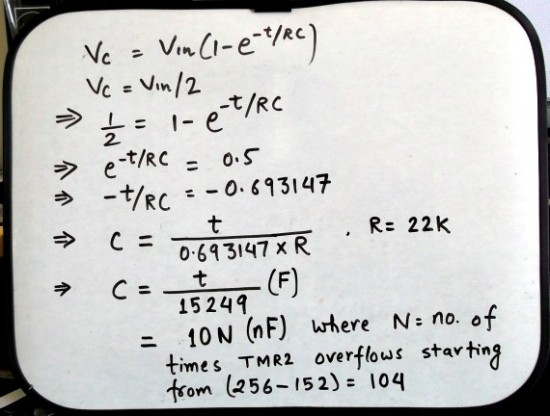 Vc = Vin(1-e^-t/RC)
Vc = Vin/2
⇒ 1/2 = 1- e^-t/RC
⇒ e^-t/RC = 0.5
⇒ -t/RC = -0.693147
⇒ C = t/0.693147 x R , R= 22K
⇒ C = t/15249 (F)
= 10N (nF) where N= no. of
times TMR2 overflows starting
from (256-152) = 104